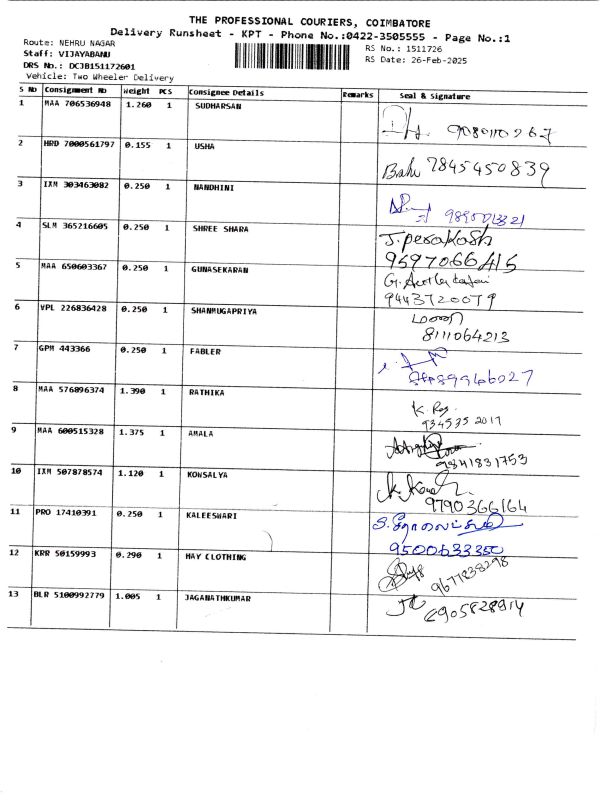 THE PROFESSIONAL COURIERS, COIMBATORE
Delivery Runsheet - KPT - Phone No.:0422-3505555 - Page No.:1
Route: NEHRU NAGAR
RS No.: 1511726
Staff: VIJAYABANU
RS Date: 26-Feb-2025
DRS No.: DCJB151172601
Vehicle: Two Wheeler Delivery
S No Consignment No Weight PCS Consignee Details Remarks Seal & Signature
1 MAA 706536948 1.260 1 SUDHARSAN
2 HRD 7000561797 0.155 1 USHA
7845450839
3 IXM 303463082 0.250 1 NANDHINI
4 SLM 365216605 0.250 1 SHREE SHARA
J. perakash
9597066415
5 MAA 650603367 0.250 1 GUNASEKARAN
9443720079
6 VPL 226836428 0.250 1 SHANMUGAPRIYA
8111064213
7 GPM 443366 0.250 1 FABLER
8 MAA 576896374 1.390 1 RATHIKA
K. Raj
934535 2017
9 MAA 600515328 1.375 1 AMALA
9841831753
10 IXM 507878574 1.120 1 KOWSALYA
9790366164
11 PRO 17410391 0.250 1 KALEESWARI
9500633350
12 KRR 50159993 0.290 1 HAY CLOTHING
9677838298
13 BLR 5100992779 1.005 1 JAGANATHKUMAR